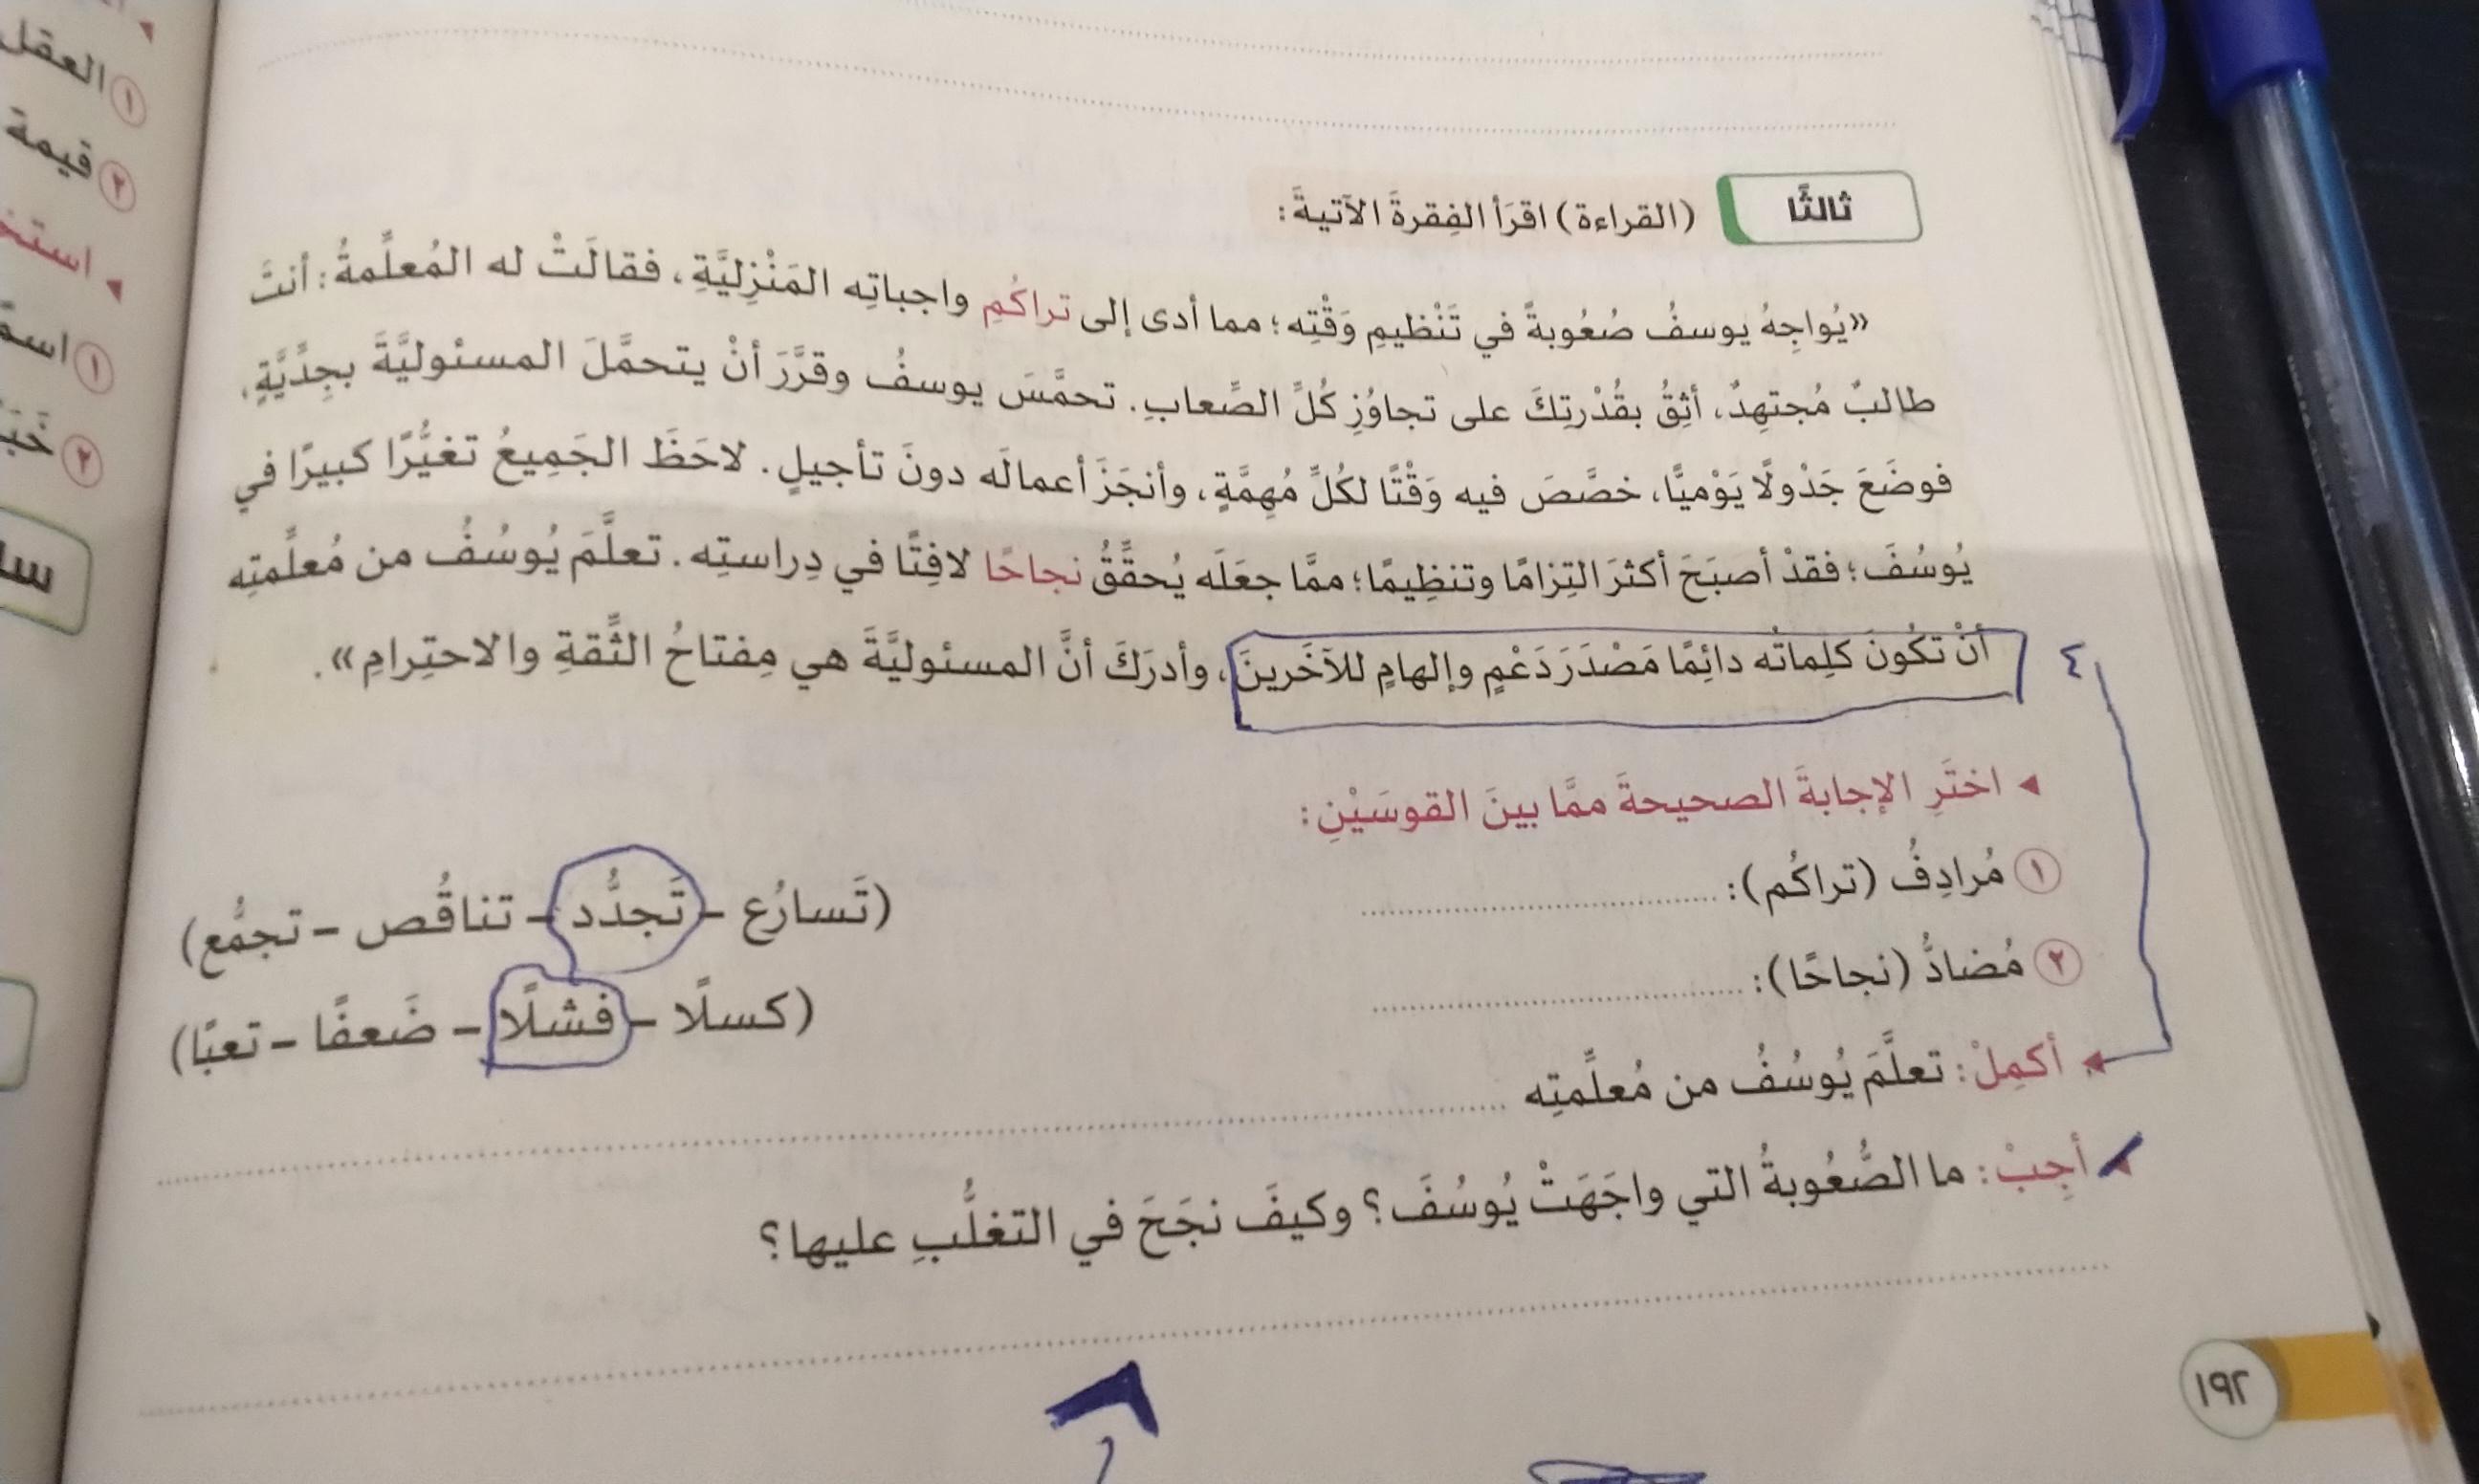 ثالثًا (القراءة) اقرَأ الفِقرةَ الآتيةَ:
«يُواجِهُ يوسفُ صُعُوبةً في تَنْظيمِ وَقْتِه؛ مما أدى إلى تراكُمِ واجباتِه المَنْزِليَّةِ، فقالَتْ له المُعلِّمةُ: أنتَ
طالبٌ مُجتهِدٌ، أثِقُ بقُدْرتِكَ على تجاوُزِ كُلِّ الصِّعابِ. تحمَّسَ يوسفُ وقرَّرَ أنْ يتحمَّلَ المسئوليَّةَ بجِدِّيَّةٍ،
فوضَعَ جَدْولًا يَوْميًّا، خصَّصَ فيه وَقْتًا لكُلِّ مُهِمَّةٍ، وأنجَزَ أعمالَه دونَ تأجيلٍ. لاحَظَ الجَمِيعُ تغيُّرًا كبيرًا في
يُوسُفَ؛ فقدْ أصبَحَ أكثرَ التِزامًا وتنظِيمًا؛ ممَّا جعَلَه يُحقِّقُ نجاحًا لافِتًا في دِراستِه. تعلَّمَ يُوسُفُ من مُعلِّمتِه
أنْ تكُونَ كلِماتُه دائِمًا مَصْدَرَ دَعْمٍ وإلهامٍ للآخَرينَ، وأدرَكَ أنَّ المسئوليَّةَ هي مِفتاحُ الثِّقةِ والاحتِرامِ».
٤
◂ اختَرِ الإجابةَ الصحيحةَ ممَّا بينَ القوسَيْنِ:
١ مُرادِفُ (تراكُم): .................... (تَسارُع – تَجدُّد – تناقُص – تجمُّع)
٢ مُضادُّ (نجاحًا): .................... (كسلًا – فشلًا – ضَعفًا – تعبًا)
◂ أكمِلْ: تعلَّمَ يُوسُفُ من مُعلِّمتِه ....................
◂ أجِبْ: ما الصُّعُوبةُ التي واجَهَتْ يُوسُفَ؟ وكيفَ نجَحَ في التغلُّبِ عليها؟
١٩٢
١ العقل
٢ قيمة
◂ استخ
١
٢